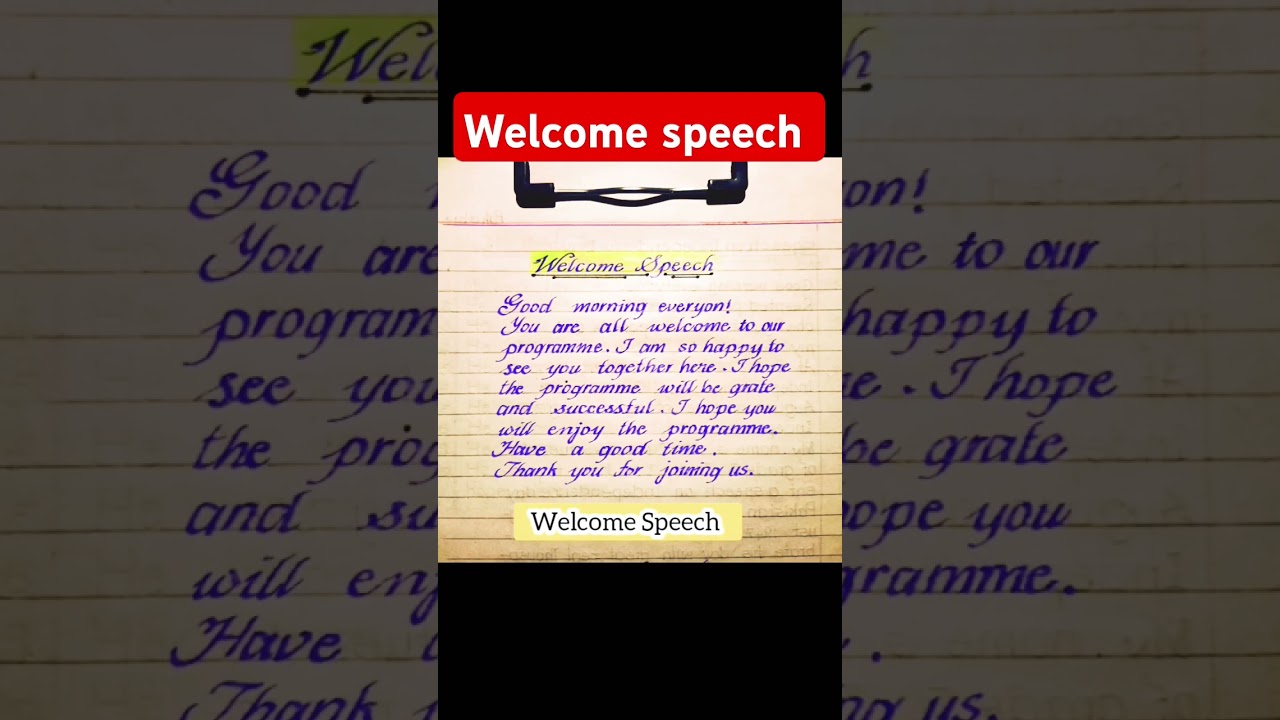 Welcome speech
Welcome Speech
Good morning everyon!
You are all welcome to our
programme. I am so happy to
see you together here. I hope
the programme will be grate
and successful. I hope you
will enjoy the programme.
Have a good time.
Thank you for joining us.
Welcome Speech